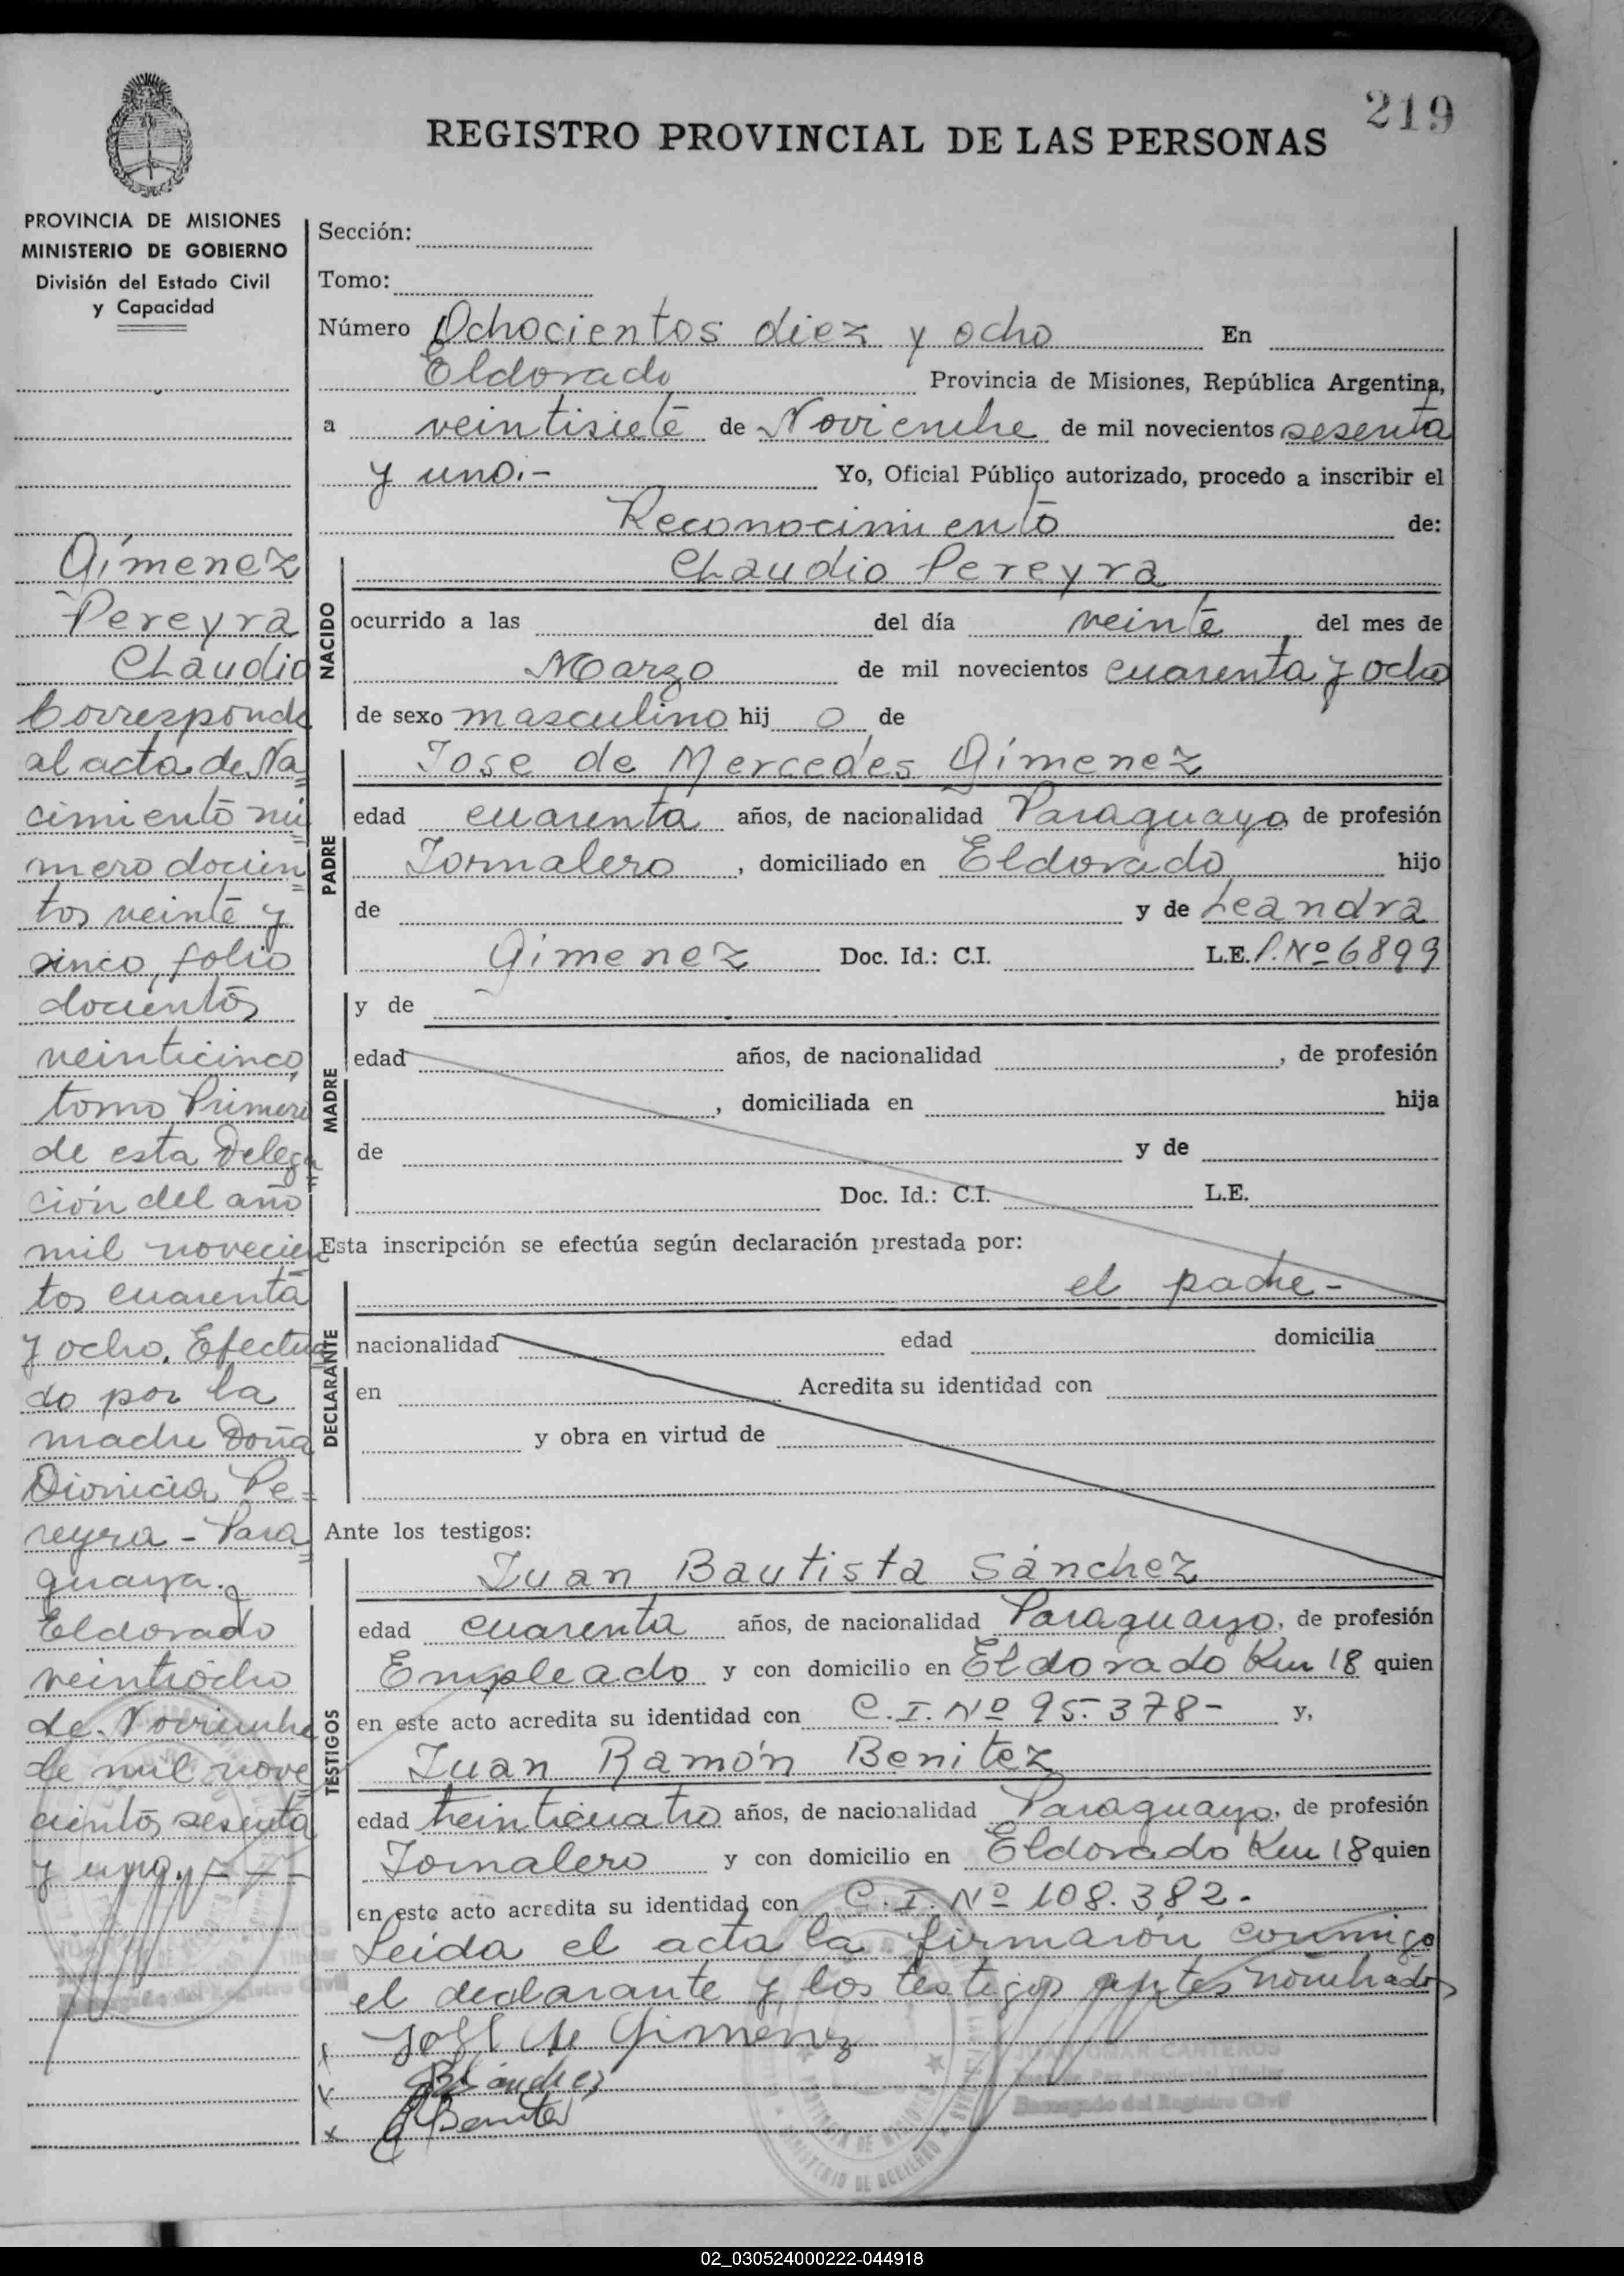 219
REGISTRO PROVINCIAL DE LAS PERSONAS
PROVINCIA DE MISIONES
MINISTERIO DE GOBIERNO
División del Estado Civil
y Capacidad
Gimenez
Pereyra
Claudio
Corresponde
al acta de Na=
cimiento nú=
mero docien=
tos veinte y
cinco, folio
docientos
veinticinco,
tomo Primero
de esta Delega=
ción del año
mil novecien=
tos cuarenta
y ocho. Efectua=
do por la
madre Doña
Dionicia Pe=
reyra - Para=
guaya.
Eldorado
veintiocho
de Noviembre
de mil nove
cientos sesenta
y uno. - - -
Sección:
Tomo:
Número Ochocientos diez y ocho En
Eldorado Provincia de Misiones, República Argentina,
a veintisiete de Noviembre de mil novecientos sesenta
y uno.- Yo, Oficial Público autorizado, procedo a inscribir el
Reconocimiento de:
NACIDO
Claudio Pereyra
ocurrido a las del día veinte, del mes de
Marzo de mil novecientos cuarenta y ocho
de sexo masculino hij o de
PADRE
Jose de Mercedes Gimenez
edad cuarenta años, de nacionalidad Paraguaya de profesión
Jornalero, domiciliado en Eldorado hijo
de y de Leandra
Gimenez Doc. Id.: C.I. L.E. P. Nº 6899
MADRE
y de
edad años, de nacionalidad , de profesión
, domiciliada en hija
de y de
Doc. Id.: C.I. L.E.
Esta inscripción se efectúa según declaración prestada por:
el padre-
DECLARANTE
nacionalidad edad domicilia
en Acredita su identidad con
y obra en virtud de
Ante los testigos:
TESTIGOS
Juan Bautista Sánchez
edad cuarenta años, de nacionalidad Paraguayo, de profesión
Empleado y con domicilio en Eldorado Km 18 quien
en este acto acredita su identidad con C.I. Nº 95.378- y,
Juan Ramón Benitez
edad treinticuatro años, de nacionalidad Paraguayo, de profesión
Jornalero y con domicilio en Eldorado Km 18 quien
en este acto acredita su identidad con C.I. Nº 108.382.-
Leida el acta la firmaron conmigo
el declarante y los testigos antes nombrados
x José M de Gimenez
x B Sanchez
x Benitez
JUAN OMAR CANTEROS
Juez de Paz Provincial Titular
Encargado del Registro Civil
02_030524000222-044918